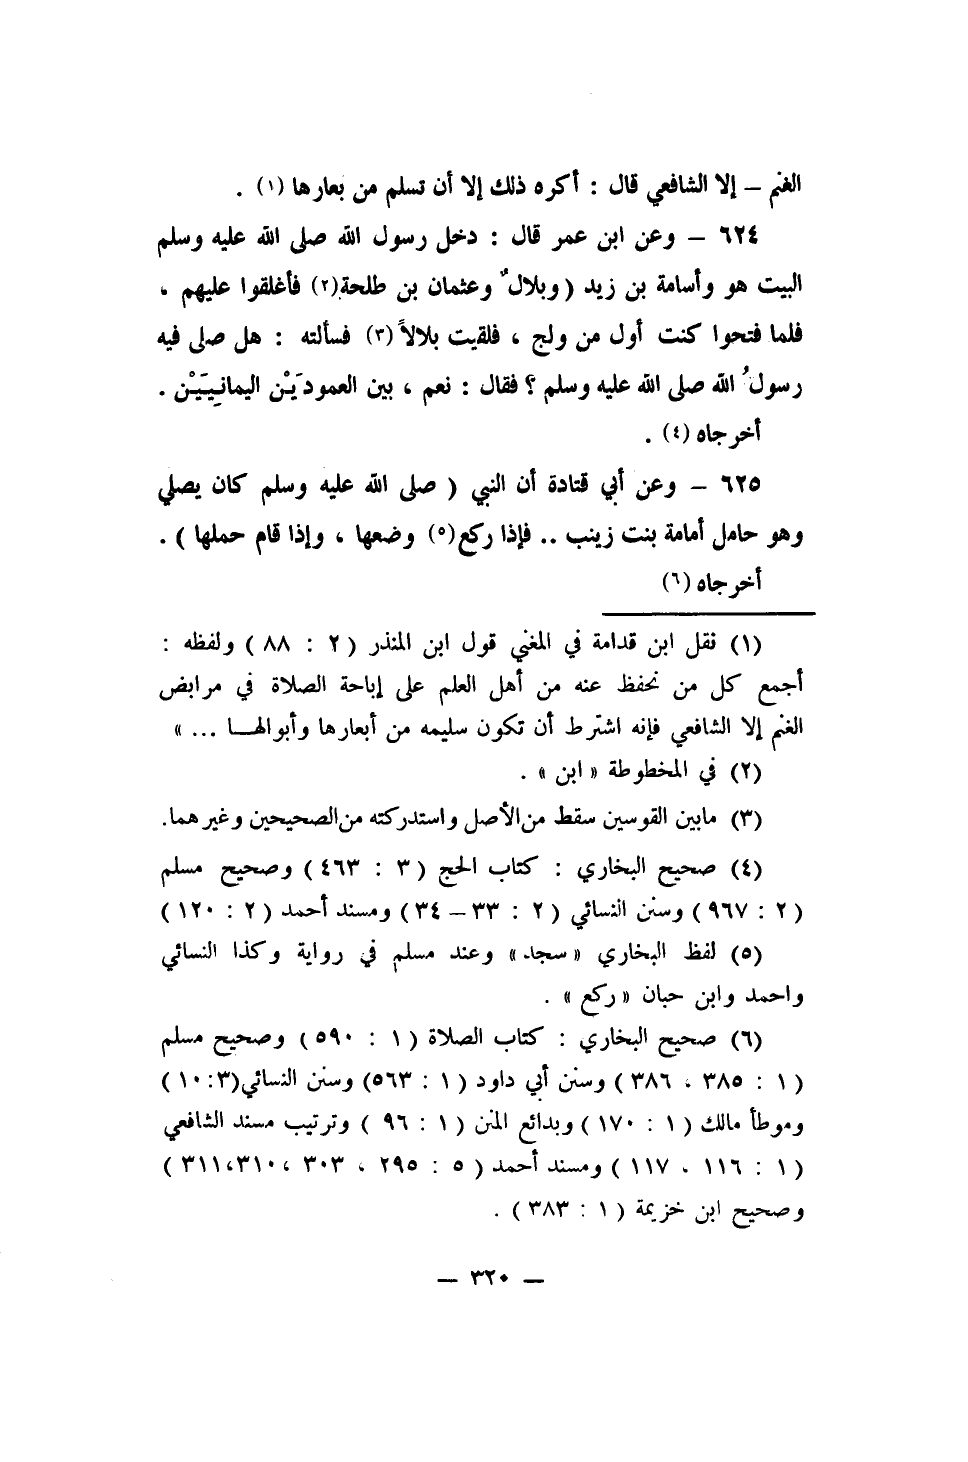 الغنم – إلا الشافعي قال : أكره ذلك إلا أن تسلم من بعارها (١) .
٦٢٤ – وعن ابن عمر قال : دخل رسول الله صلى الله عليه وسلم
البيت هو وأسامة بن زيد ( وبلالٌ وعثمان بن طلحة(٢) فأغلقوا عليهم ،
فلما فتحوا كنت أول من ولج ، فلقيت بلالاً (٣) فسألته : هل صلى فيه
رسولُ الله صلى الله عليه وسلم ؟ فقال : نعم ، بين العمودَيْن اليمانيَيْن .
أخرجاه (٤) .
٦٢٥ – وعن أبي قتادة أن النبي ( صلى الله عليه وسلم كان يصلي
وهو حامل أمامة بنت زينب .. فإذا ركع(٥) وضعها ، وإذا قام حملها ) .
أخرجاه (٦)
(١) نقل ابن قدامة في المغني قول ابن المنذر ( ٢ : ٨٨ ) ولفظه :
أجمع كل من نحفظ عنه من أهل العلم على إباحة الصلاة في مرابض
الغنم إلا الشافعي فإنه اشترط أن تكون سليمه من أبعارها وأبوالهـا ... »
(٢) في المخطوطة « ابن » .
(٣) مابين القوسين سقط من الأصل واستدركته من الصحيحين وغيرهما.
(٤) صحيح البخاري : كتاب الحج ( ٣ : ٤٦٣ ) وصحيح مسلم
( ٢ : ٩٦٧ ) وسنن النسائي ( ٢ : ٣٣ – ٣٤ ) ومسند أحمد ( ٢ : ١٢٠ )
(٥) لفظ البخاري « سجد » وعند مسلم في رواية وكذا النسائي
واحمد وابن حبان « ركع » .
(٦) صحيح البخاري : كتاب الصلاة ( ١ : ٥٩٠ ) وصحيح مسلم
( ١ : ٣٨٥ ، ٣٨٦ ) وسنن أبي داود ( ١ : ٥٦٣) وسنن النسائي(٣ : ١٠ )
وموطأ مالك ( ١ : ١٧٠ ) وبدائع المنن ( ١ : ٩٦ ) وترتيب مسند الشافعي
( ١ : ١١٦ ، ١١٧ ) ومسند أحمد ( ٥ : ٢٩٥ ، ٣٠٣ ،٣١٠،٣١١ )
وصحيح ابن خزيمة ( ١ : ٣٨٣ ) .
– ٣٢٠ –